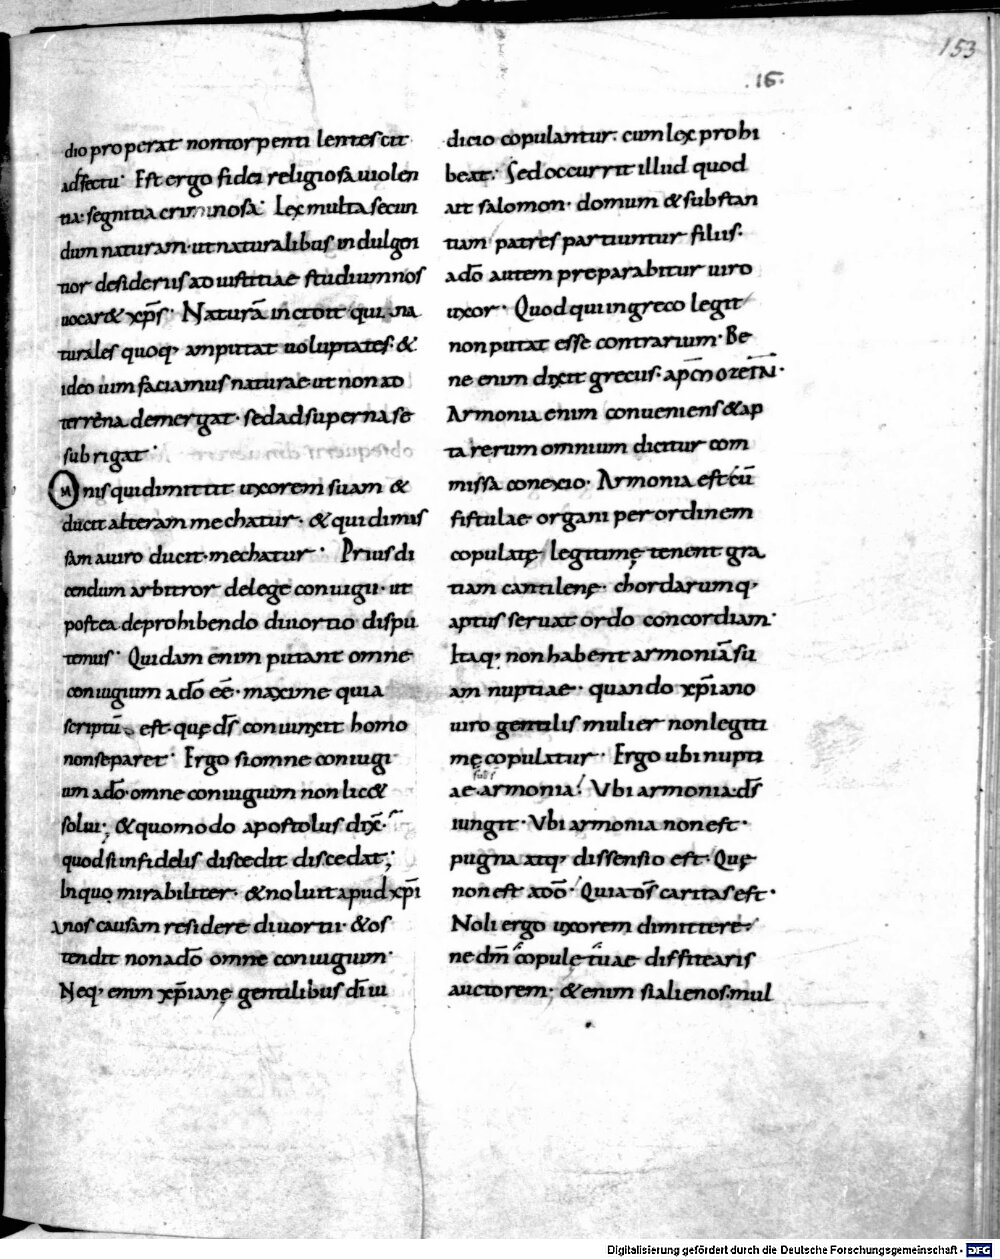 153
16.
dio properat non torpenti lentescit
adfectu· Est ergo fidei religiosa uiolen
tia· segnitia criminosa· Lex multa secun
dum naturam· ut naturalibus indulgen
tior desideriis ad iustitiae studium nos
uocar& xp̄s· Naturā incidit qui na
turales quoq, amputat uoluptates· &
ideo uim faciamus naturae ut non ad
terrena demergat· sed ad superna se
subrigat·
Omnis qui dimittit uxorem suam &
ducit alteram mechatur· & qui dimis
sam a uiro ducit· mechatur· Prius di
cendum arbitror de lege coniugii· ut
postea de prohibendo diuortio dispu
temus· Quidam enim putant omne
coniugium a dō eē· maxime quia
scriptū est· quę d̄s coniunxit homo
non separet· Ergo si omne coniugi
um a dō· omne coniugium non lic&
solui; & quomodo apostolus dix̄·
quod si infidelis discedit discedat;
In quo mirabiliter· & noluit apud xp̄i
anos causam residere diuortii· & os
tendit non a dō omne coniugium·
Neq, enim xp̄ianę gentilibus dī iu
dicio copulantur· cum lex prohi
beat· Sed occurrit illud quod
ait salomon· domum & substan
tiam patres partiuntur filiis·
a dō autem preparabitur uiro
uxor· Quod qui in greco legit
non putat esse contrarium· Be
ne enim dixit grecus· ΑΡΜΟΖΕΤΑΙ·
Armonia enim conueniens & ap
ta rerum omnium dicitur com
missa conexio· Armonia est cū
fistulae organi per ordinem
copulatę legitimę tenent gra
tiam cantilenę· chordarumq,
aptus seruat ordo concordiam·
Itaq, non habent armoniā su
am nuptiae· quando xp̄iano
uiro gentilis mulier non legiti
mę copulatur· Ergo ubi nupti
ae· armonia· Vbi armonia· d̄s
iungit· Vbi armonia non est·
pugna atq, dissensio est· Quę
non est a dō· Quia d̄s caritas est·
Noli ergo uxorem dimittere·
ne dm̄ copulę tuae diffitearis
auctorem; &enim si alienos· mul
Digitalisierung gefördert durch die Deutsche Forschungsgemeinschaft - DFG